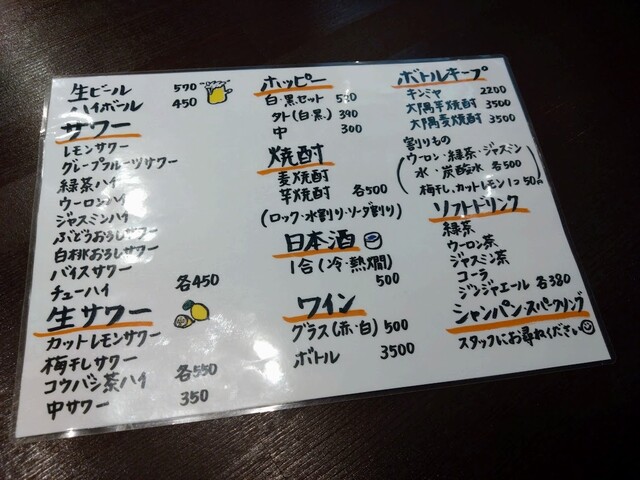 生ビール 570
ハイボール 450
サワー
レモンサワー
グレープフルーツサワー
緑茶ハイ
ウーロンハイ
ジャスミンハイ
ぶどうおろしサワー
白桃おろしサワー
バイスサワー
チューハイ 各450
生サワー
カットレモンサワー
梅干しサワー
コウバシ茶ハイ 各550
中サワー 350
ホッピー
白・黒セット
外(白・黒) 390
中 300
焼酎
麦焼酎
芋焼酎 各500
(ロック・水割り・ソーダ割り)
日本酒
1合(冷・熱燗)
500
ワイン
グラス(赤・白) 500
ボトル 3500
ボトルキープ
キンミヤ 2200
大隅芋焼酎 3500
大隅麦焼酎 3500
割りもの
ウーロン・緑茶・ジャスミン
水・炭酸水 各500
梅干し、カットレモン1つ50円
ソフトドリンク
緑茶
ウーロン茶
ジャスミン茶
コーラ
ジンジャエール 各380
シャンパン・スパークリング
スタッフにお尋ねください